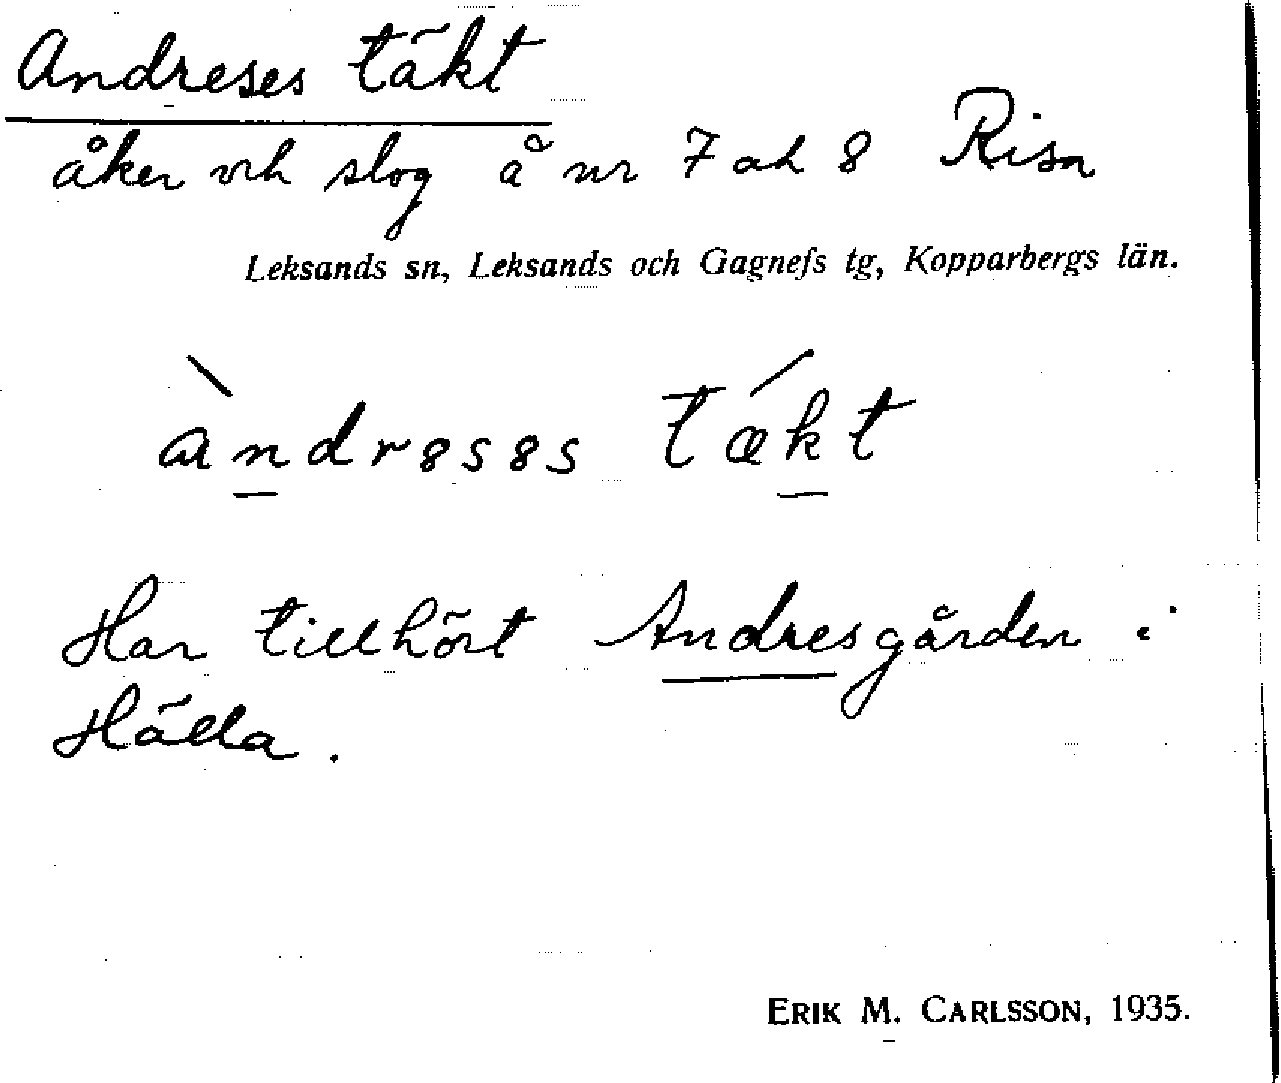 Andreses täkt
åker och slog å nr 7 och 8 Risa
Leksands sn, Leksands och Gagnefs tg, Kopparbergs län.
àndrəsəs tǽkt
Har tillhört Andresgården i
Hälla.
ERIK M. CARLSSON, 1935.